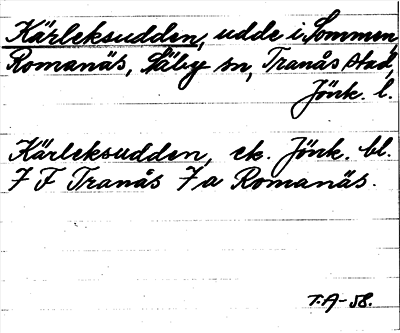 Kärleksudden, udde i Sommen,
Romanäs, Säby sn, Tranås stad,
Jönk. l.
Kärleksudden, ek. Jönk. bl.
7 F Tranås 7a Romanäs.
T.A-58.